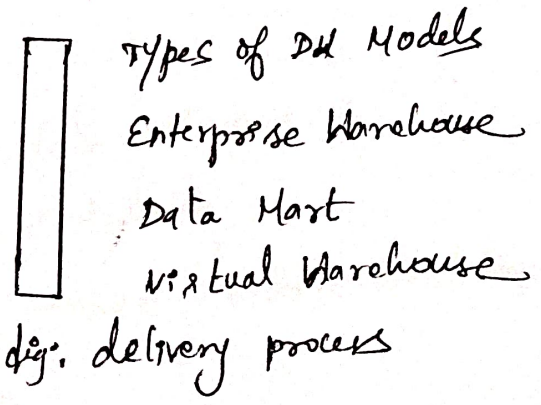 Types of DW Models
Enterprise Warehouse
Data Mart
Virtual Warehouse
dig:. delivery process